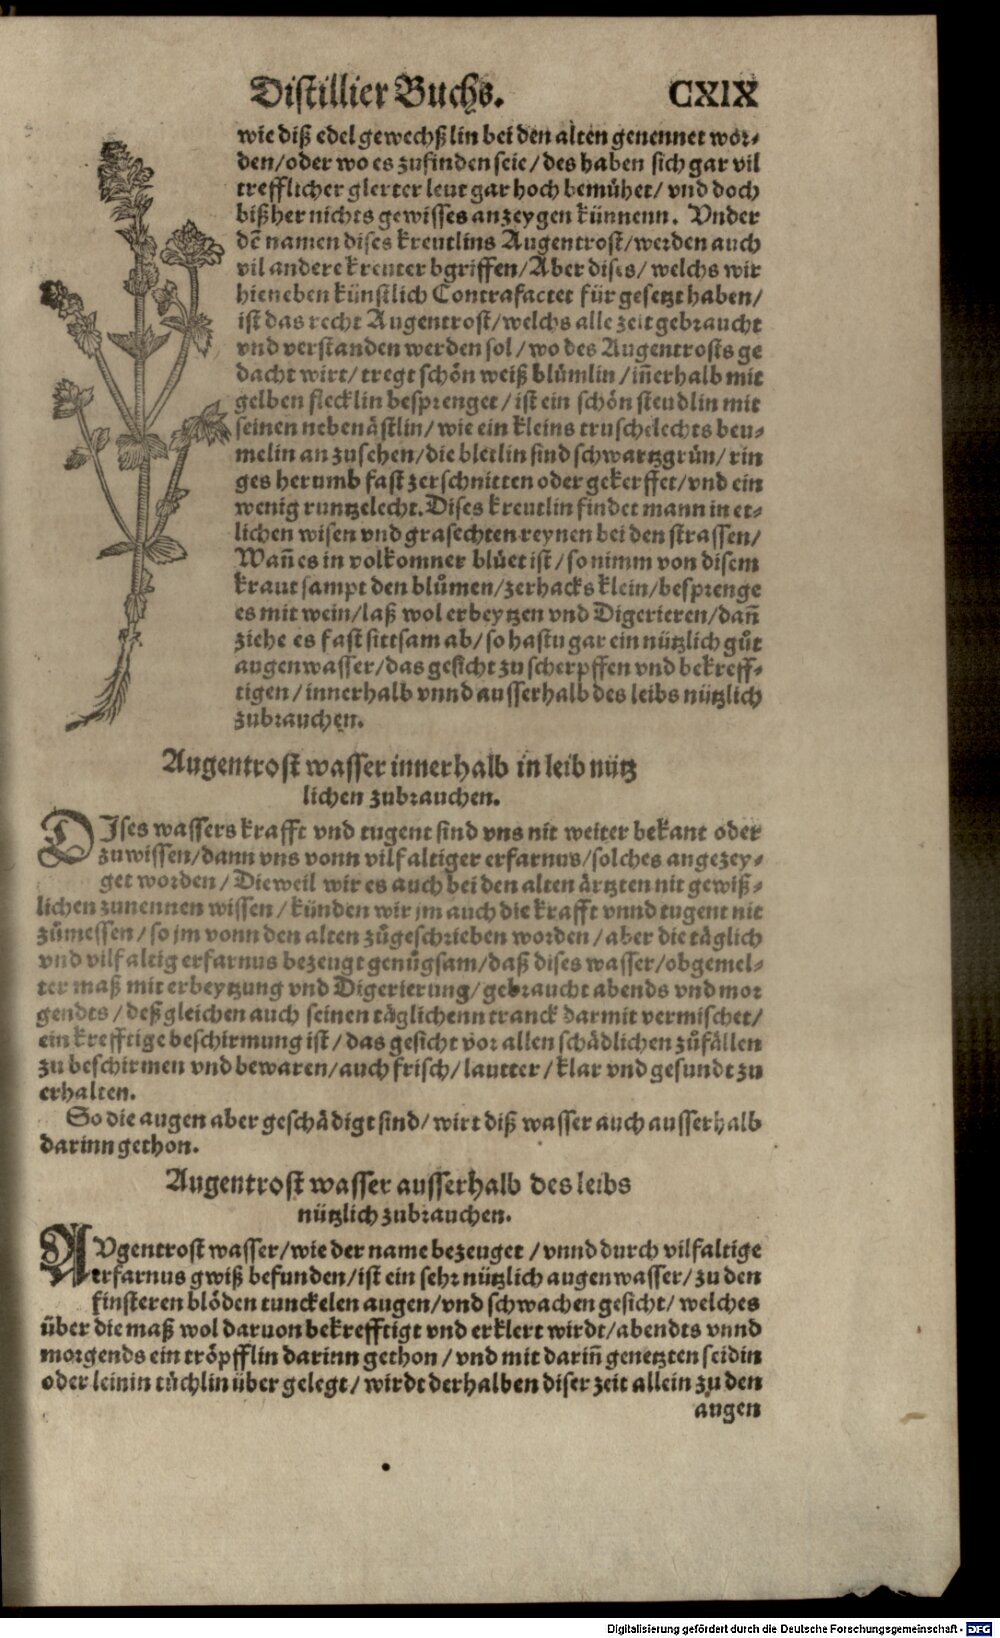 Distillier Buchs. CXIX
wie diß edel gewechßlin bei den alten genennet wor⸗
den/oder wo es zufinden seie/des haben sich gar vil
trefflicher glerter leut gar hoch bemühet/ vnd doch
bißher nichts gewisses anzeygen künnenn. Vnder
dẽ namen dises kreutlins Augentrost/werden auch
vil andere kreuter bgriffen/Aber dises/ welchs wir
hieneben künstlich Contrafactet für gesetzt haben/
ist das recht Augentrost/welchs alle zeit gebraucht
vnd verstanden werden sol/ wo des Augentrosts ge
dacht wirt/ tregt schön weiß blůmlin/iñerhalb mit
gelben flecklin besprenget/ ist ein schön steudlin mit
seinen nebenästlin/ wie ein kleins truschelechts beu⸗
melin anzusehen/die bletlin sind schwartzgrün/ rin
ges herumb fast zerschnitten oder gekerffet/vnd ein
wenig runtzelecht. Dises kreutlin findet mann in et⸗
lichen wisen vnd grasechten reynen bei den strassen/
Wañ es in volkomner blüet ist/ so nimm von disem
kraut sampt den blůmen/zerhacks klein/besprenge
es mit wein/laß wol erbeytzen vnd Digerieren/dañ
ziehe es fast sittsam ab/so hastu gar ein nützlich gůt
augenwasser/das gesicht zu scherpffen vnd bekreff⸗
tigen/ innerhalb vnnd ausserhalb des leibs nützlich
zubrauchen.
Augentrost wasser innerhalb in leib nütz
lichen zubrauchen.
DIses wassers krafft vnd tugent sind vns nit weiter bekant oder
zuwissen/dann vns vonn vilfaltiger erfarnus/solches angezey⸗
get worden/ Dieweil wir es auch bei den alten ärtzten nit gewiß⸗
lichen zunennen wissen/ künden wir jm auch die krafft vnnd tugent nit
zůmessen/ so jm vonn den alten zůgeschrieben worden/ aber die täglich
vnd vilfaltig erfarnus bezeugt genůgsam/daß dises wasser/obgemel⸗
ter maß mit erbeytzung vnd Digerierung/ gebraucht abends vnd mor
gendts/ deßgleichen auch seinen täglichenn tranck darmit vermischet/
ein krefftige beschirmung ist/ das gesicht vor allen schädlichen zůfällen
zu beschirmen vnd bewaren/auch frisch/ lautter/ klar vnd gesundt zu
erhalten.
So die augen aber geschädigt sind/ wirt diß wasser auch ausserhalb
darinn gethon.
Augentrost wasser ausserhalb des leibs
nützlich zubrauchen.
AVgentrost wasser/wie der name bezeuget/ vnnd durch vilfaltige
erfarnus gwiß befunden/ist ein sehr nützlich augenwasser/ zu den
finsteren blöden tunckelen augen/vnd schwachen gesicht/ welches
über die maß wol daruon bekrefftigt vnd erklert wirdt/abendts vnnd
morgends ein tröpfflin darinn gethon/ vnd mit dariñ genetzten seidin
oder leinin tüchlin über gelegt/ wirdt derhalben diser zeit allein zu den
augen
Digitalisierung gefördert durch die Deutsche Forschungsgemeinschaft - DFG